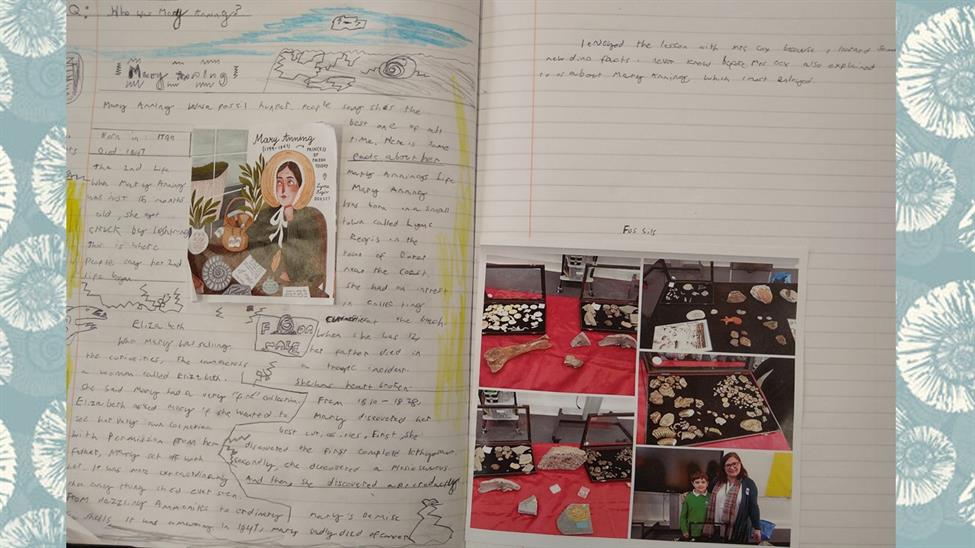 Q: Who was Mary Anning?
Mary Anning
Mary Anning was a fossil hunter. People say shes the
best one of all
time. Here is some
facts about her
Born in: 1799
Died 1847
The 2nd Life
When Mary Anning
was just 15 months
old, she got
struck by lightning
this is where
people say her 2nd
life began
Mary Anning
(1799-1847)
PRINCESS
OF
Lyme
Regis
DORSET
Mary Annings Life
Mary Anning
was born in a small
town called Lyme
Regis in the
near the coast.
She had an intrest
in collecting
the beach.
When she was 12
her father died in
a tragic incident.
She was heart broken
From 1810 - 1828.
Mary discovered her
best curiosities. First, she
discovered the first complete
secondly, she discovered a
And then she discovered a
Elizabeth
Who Mary was selling
the curiosities, she
a woman called Elizabeth.
she said Mary had a very "fine" collection
Elizabeth asked Mary if she wanted to
see her very own collection
With permission from her
father, Mary set off with
her. It was more
than anything she'd ever seen.
From dazzling Ammonits to ordinary
shells. It was amazing.
Mary's Demise
in 1847, Mary sadly died of cancer
I enjoyed the lesson with mrs cox because, I learned some
new dino facts I never knew before. Mrs cox also explained
to us about Mary Anning, which I most enjoyed.
Fossils